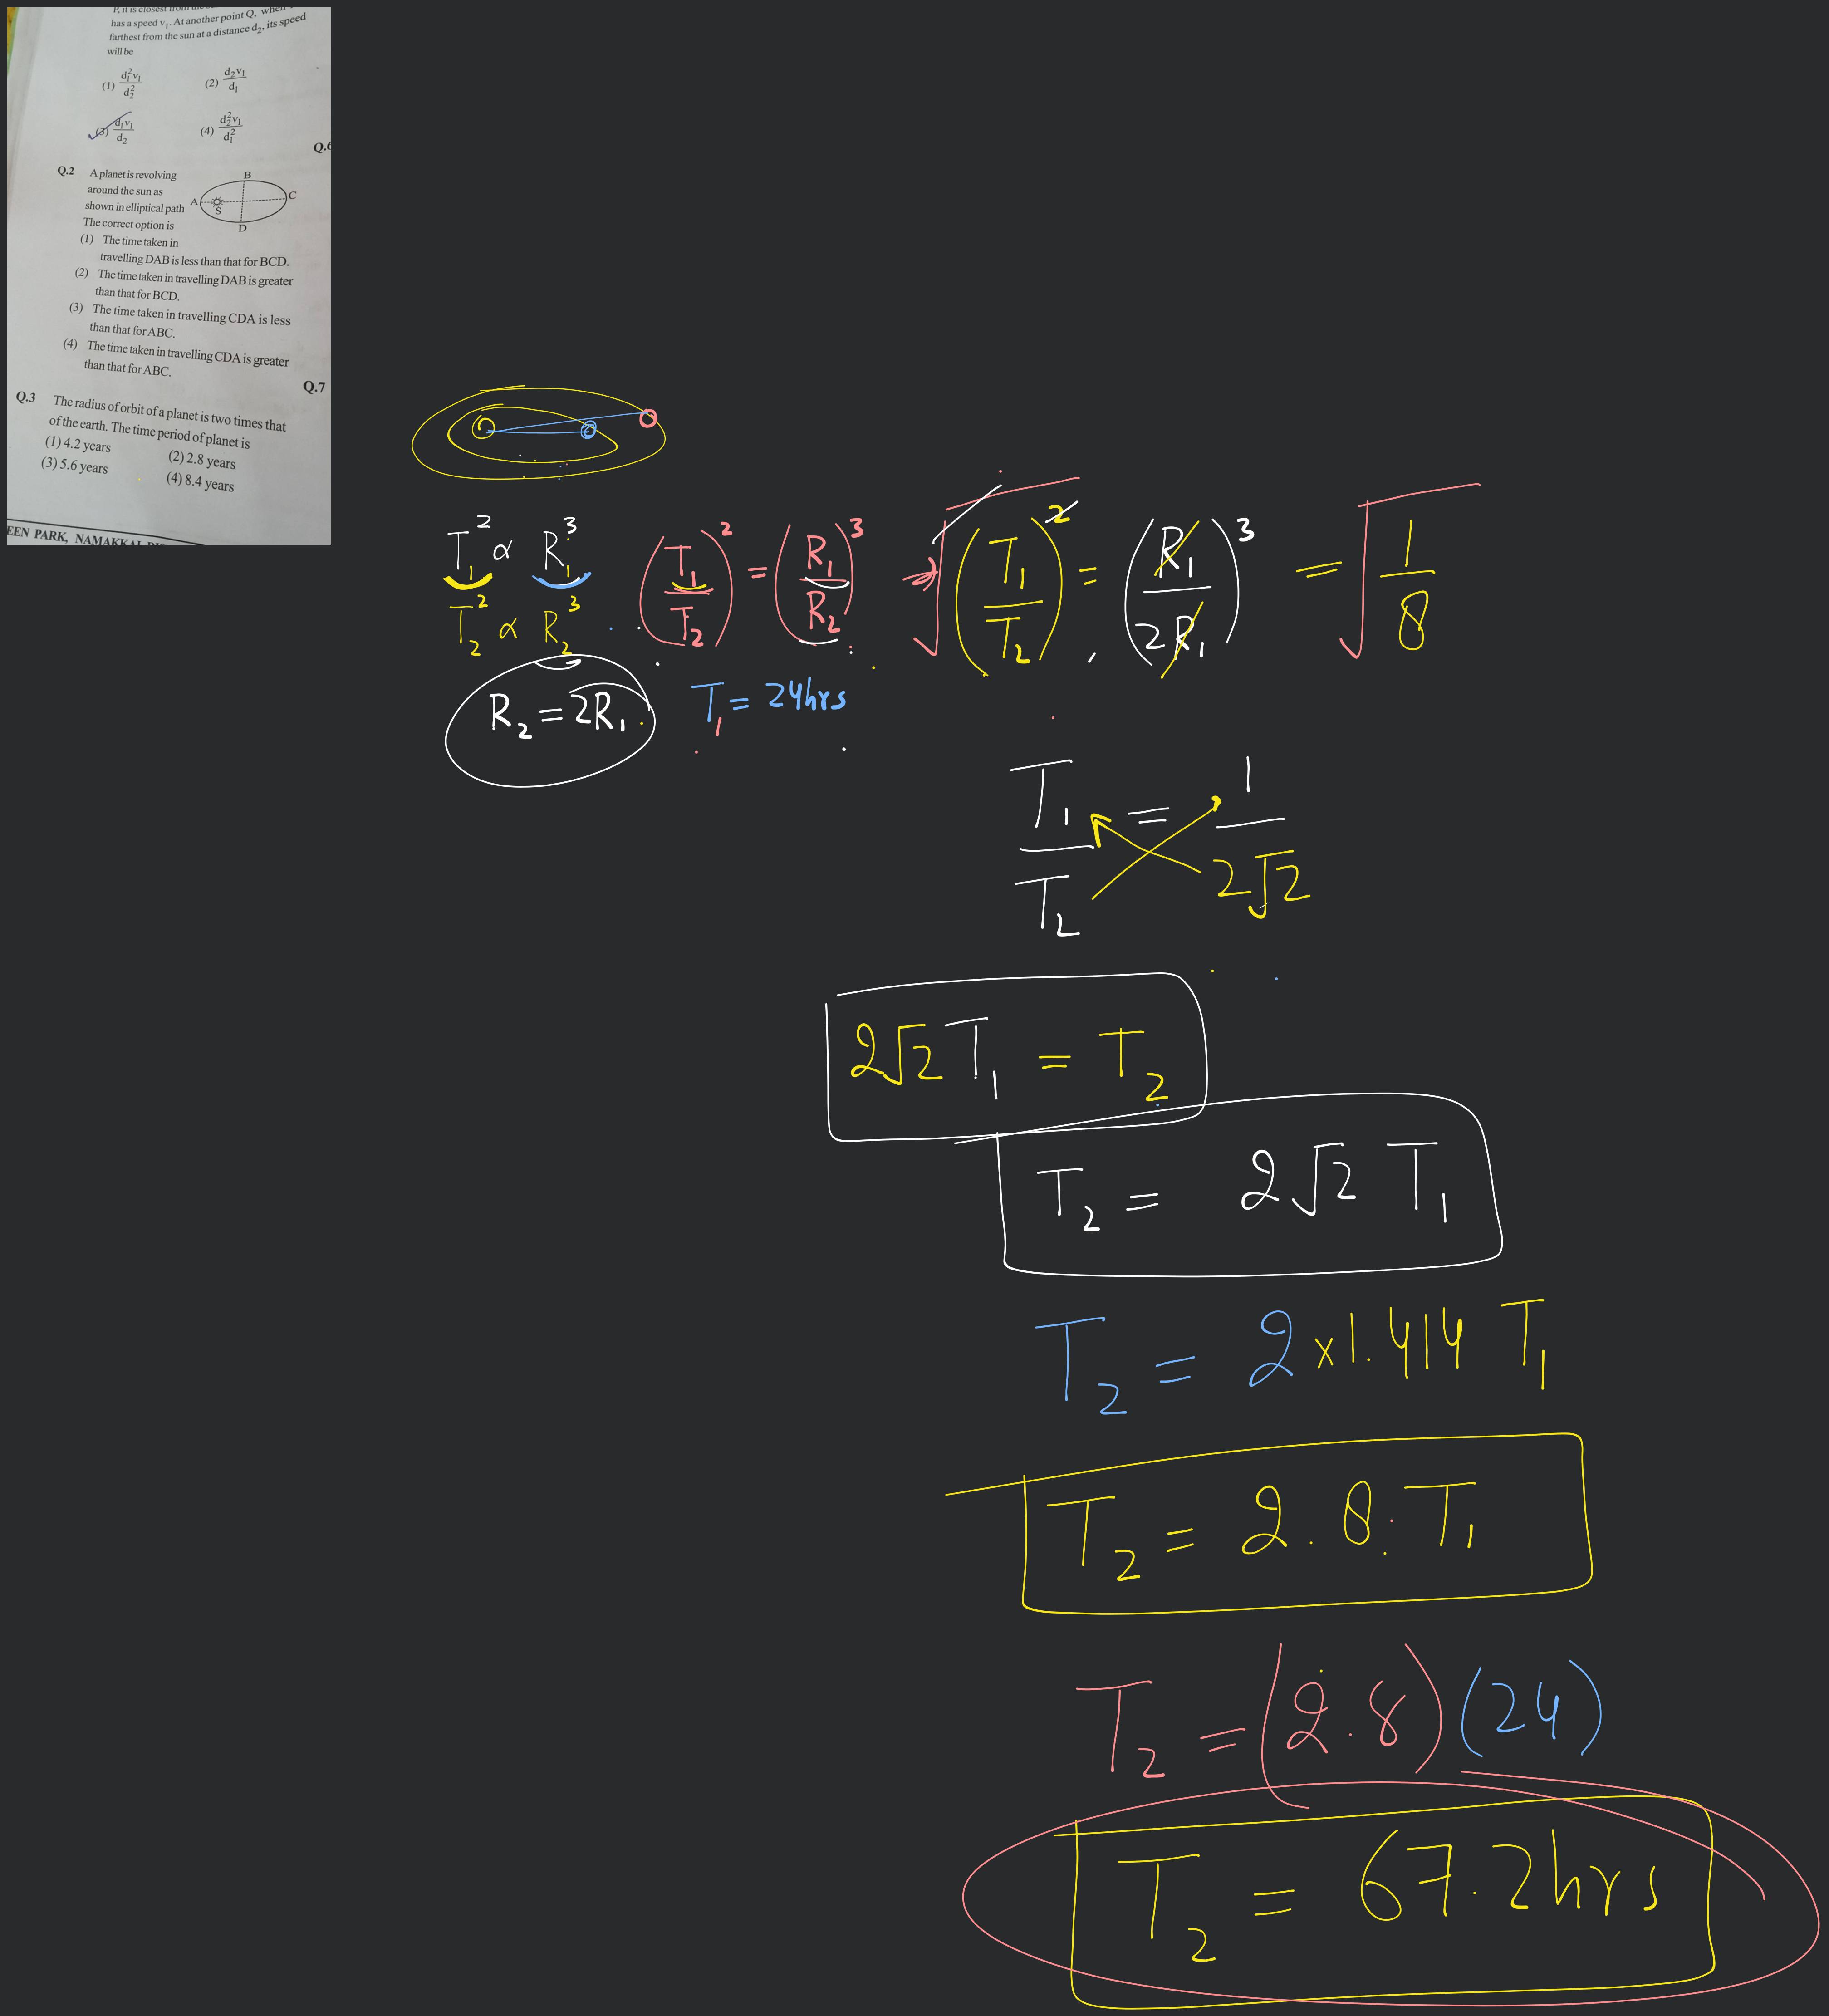 P, it is closest from the
has a speed v₁. At another point Q, when
farthest from the sun at a distance d₂, its speed
will be
(1) d₁²v₁/d₂² (2) d₂v₁/d₁
(3) d₁v₁/d₂ (4) d₂²v₁/d₁²
Q.6
Q.2 A planet is revolving
around the sun as
shown in elliptical path
The correct option is
A S B C D
(1) The time taken in
travelling DAB is less than that for BCD.
(2) The time taken in travelling DAB is greater
than that for BCD.
(3) The time taken in travelling CDA is less
than that for ABC.
(4) The time taken in travelling CDA is greater
than that for ABC.
Q.7
Q.3 The radius of orbit of a planet is two times that
of the earth. The time period of planet is
(1) 4.2 years (2) 2.8 years
(3) 5.6 years (4) 8.4 years
EEN PARK, NAMAKKAL
T₁² ∝ R₁³ (T₁/T₂)² = (R₁/R₂)³ → √(T₁/T₂)² = (R₁/2R₁)³ = √(1/8)
T₂² ∝ R₂³
R₂ = 2R₁ T₁ = 24hrs
T₁/T₂ = 1/2√2
2√2 T₁ = T₂
T₂ = 2√2 T₁
T₂ = 2×1.414 T₁
T₂ = 2.8 T₁
T₂ = (2.8)(24)
T₂ = 67.2hrs